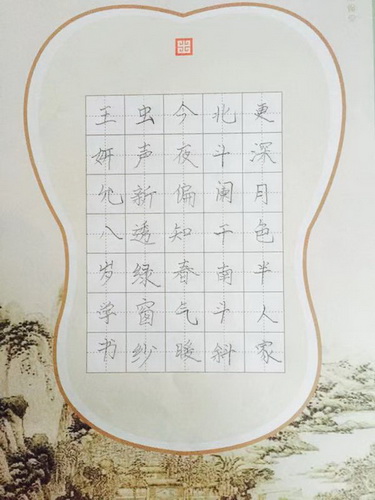 更深月色半人家
北斗阑干南斗斜
今夜偏知春气暖
虫声新透绿窗纱
王妍八岁学书